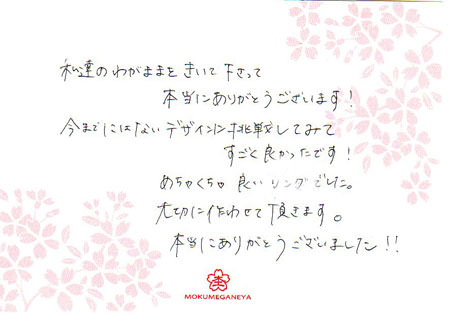 私達のわがままをきいて下さって
本当にありがとうございます!
今までにはないデザインに挑戦してみて
すごく良かったです!
めちゃくちゃ良いリングでした。
大切に作わせて頂きます。
本当にありがとうございました!!
杢
MOKUMEGANEYA